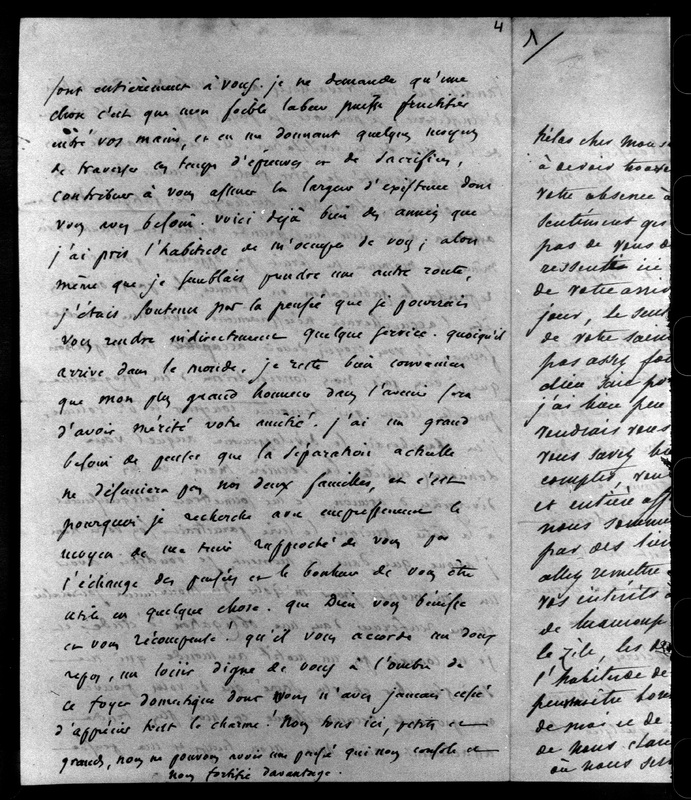 4
sont entièrement à vous. je ne demande qu'une
chose c'est que mon foible labeur puisse fructifier
entre vos mains, et en me donnant quelques moyens
de traverser ces temps d'épreuves et de sacrifices,
contribuer à vous assurer la largeur d'existence dont
vous avez besoin. voici déjà bien des années que
j'ai pris l'habitude de m'occuper de vous; alors
même que je semblais prendre une autre route,
j'étais soutenu par la pensée que je pourrais
vous rendre indirectement quelque service. quoiqu'il
arrive dans le monde, je reste bien convaincu
que mon plus grand honneur dans l'avenir sera
d'avoir mérité votre amitié. j'ai un grand
besoin de penser que la séparation actuelle
ne désunira pas nos deux familles, et c'est
pourquoi je recherche avec empressement le
moyen de me tenir rapproché de vous par
l'échange des pensées et le bonheur de vous être
utile en quelque chose. que Dieu vous bénisse
et vous récompense! qu'il vous accorde un doux
repos, un loisir digne de vous à l'ombre de
ce foyer domestique dont vous n'avez jamais cessé
d'apprécier tout le charme. Nous tous ici, petits et
grands, nous ne pouvons avoir une pensée qui nous console et
nous fortifie davantage.
1/
hélas cher mons
à devoir trouve
votre absence à
sentiment qu
pas de vous d
ressenti ici
de votre arriv
jour, le seul
de votre
pas assez
dieu
j'ai bien peu
voudrais vous
vous savez b
compter, vou
et entière aff
nous somme
par des lien
allez remettre
vos intérêts
de beaucoup
le zèle, les
l'habitude de
permettre
de moi et de
de nous
où nous